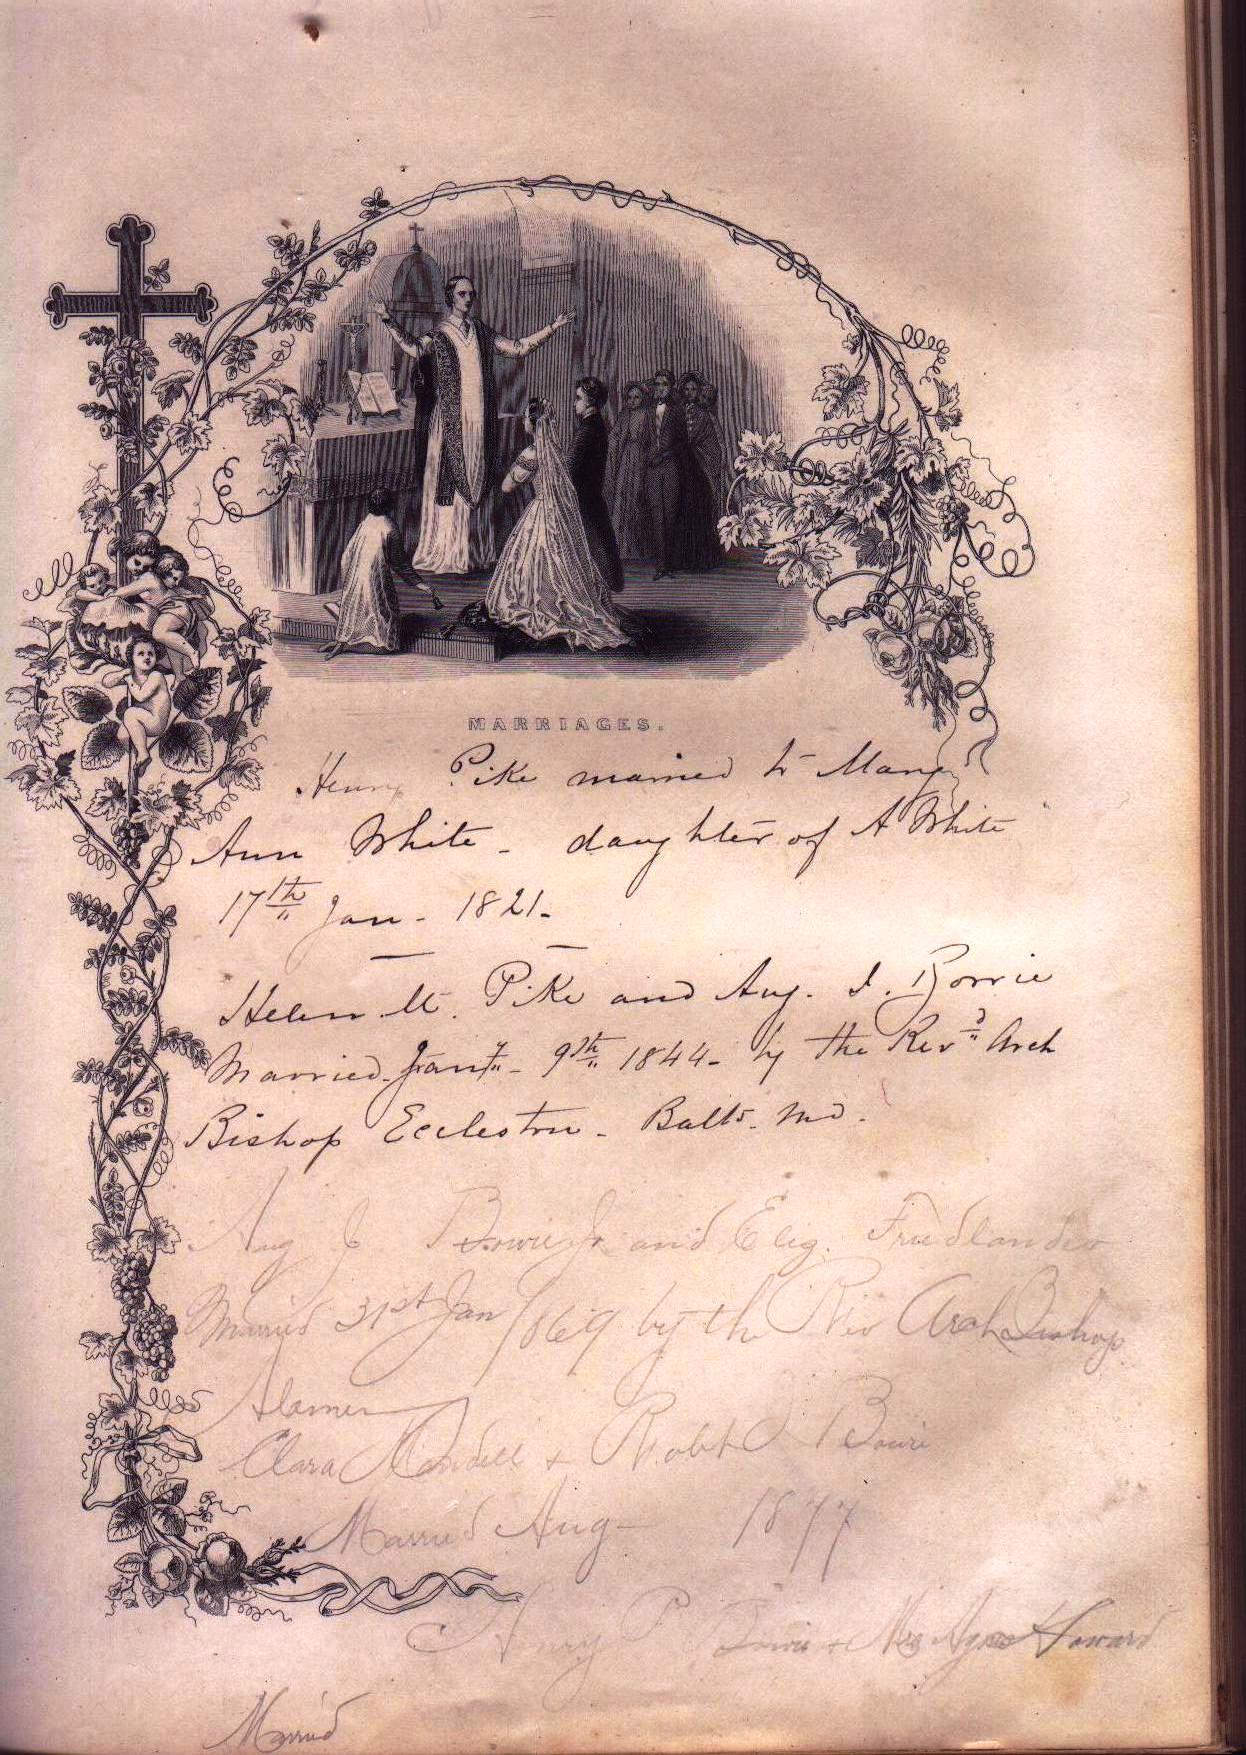 MARRIAGES.
Henry Pike married to Mary
Ann White - daughter of A White
17th Jan - 1821.
Helen M. Pike and Aug. J. Bowie
Married Jany - 9th 1844 - by the Revd Arch
Bishop Eccleston - Balto. Md.
Aug J Bowie Jr and Eliz. Friedlander
Married 31st Jan 1869 by the Rev ArchBishop
Alemany
Clara & Robt J Bowie
Married Aug - 1877
Henry P Bowie & Mrs Agnes Howard
Married